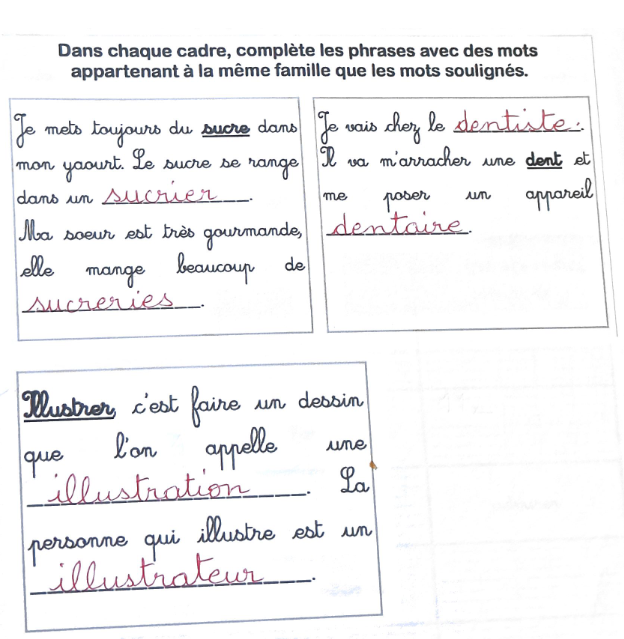 Dans chaque cadre, complète les phrases avec des mots
appartenant à la même famille que les mots soulignés.
Je mets toujours du sucre dans
mon yaourt. Le sucre se range
dans un sucrier.
Ma soeur est très gourmande,
elle mange beaucoup de
sucreries.
Je vais chez le dentiste.
Il va m'arracher une dent et
me poser un appareil
dentaire.
Illustrer, c'est faire un dessin
que l'on appelle une
illustration. La
personne qui illustre est un
illustrateur.